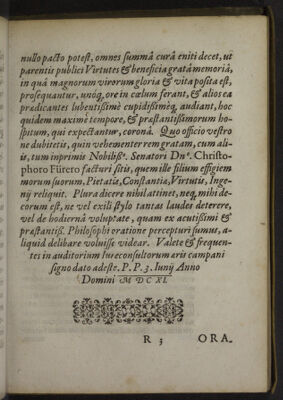 nullo pacto potest, omnes summâ curâ eniti decet, ut
parentis publici Virtutes & beneficia gratâ memoriâ,
in quâ magnorum virorum gloria & vita posita est,
prosequantur, unóq, ore in cœlum ferant, & alios ea
prædicantes lubentißimè cupidißimèq, audiant, hoc
quidem maximè tempore, & præstantißimorum ho-
spitum, qui expectantur, coronâ. Quo officio vestro
ne dubitetis, quin vehementer rem gratam, cum ali-
is, tum inprimis Nobiliß°. Senatori Dn°. Christo-
phoro Fürero facturi sitis, quem ille filium effigiem
morum suorum, Pietatis, Constantiæ, Virtutis, Inge-
nij reliquit. Plura dicere nihil attinet, neq, mihi de-
corum est, ne vel exili stylo tantas laudes deterere,
vel de hodiernâ voluptate, quam ex acutißimi &
præstantiß. Philosophi oratione percepturi sumus, a-
liquid delibare voluisse videar. Valete & frequen-
tes in auditorium Iureconsultorum æris campani
signo dato adeste. P. P. 3. Iunij Anno
Domini M DC XI.
R 3 ORA-